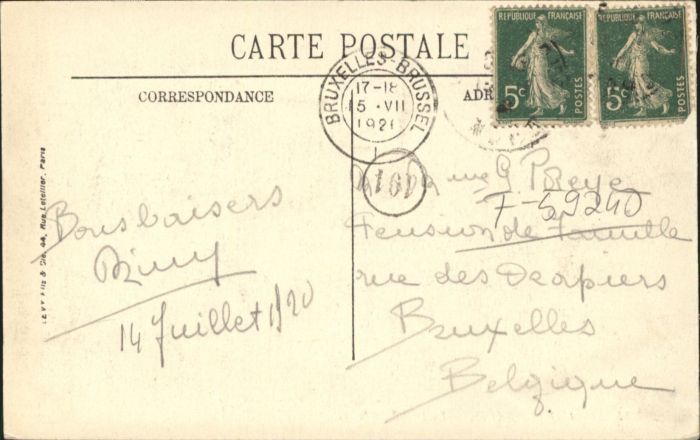 CARTE POSTALE
CORRESPONDANCE
ADR
REPUBLIQUE FRANÇAISE
5c
POSTES
REPUBLIQUE FRANÇAISE
5c
POSTES
BRUXELLES-BRUSSEL
17-18
5 VII
192
1
LEVY Fils & Cie, 44, Rue Letellier, Paris
Bons baisers
14 Juillet 1920
F-59240
Pension de famille
rue des Drapiers
Bruxelles
Belgique